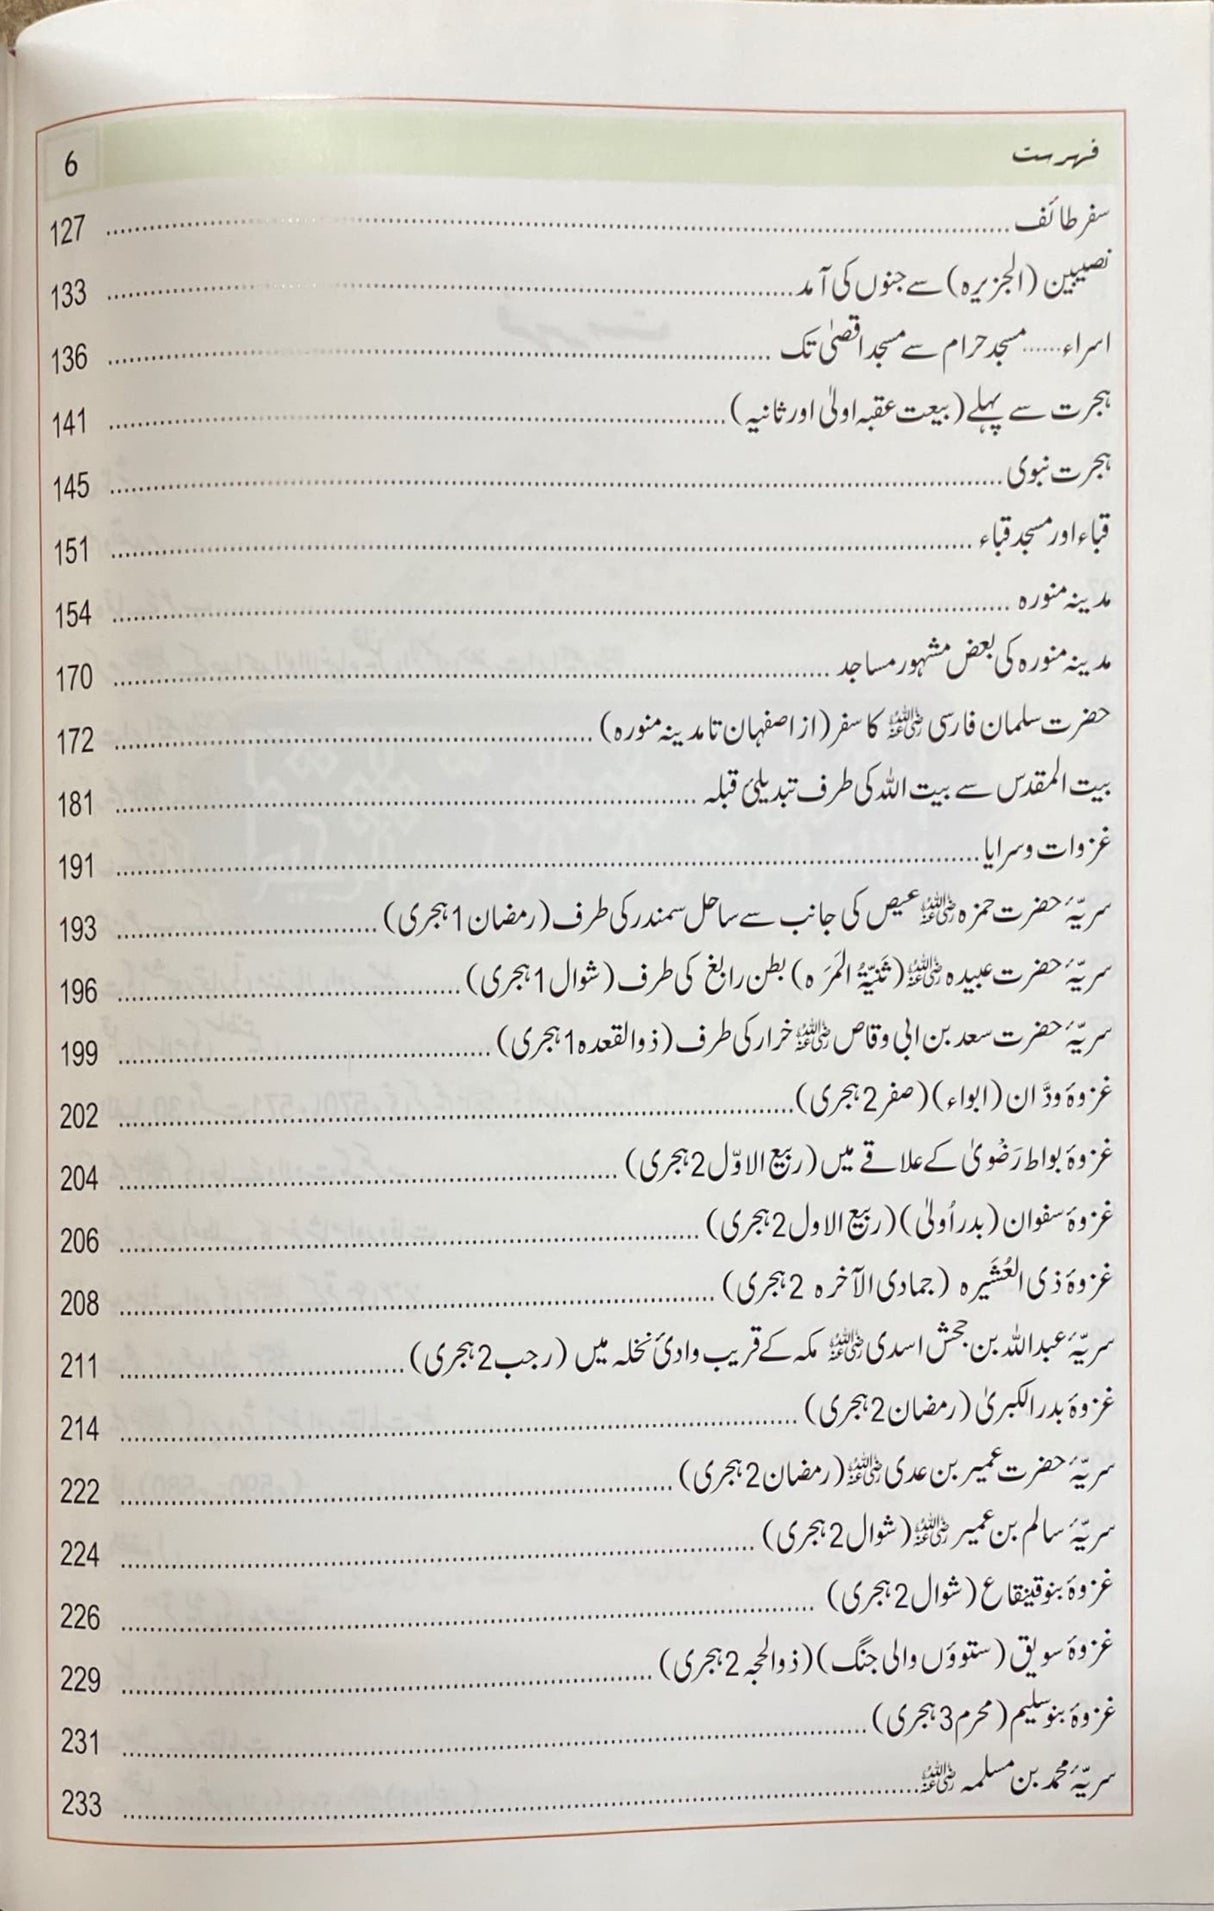 فہرست 6
سفر طائف 127
نصیبین (الجزیرہ) سے جنوں کی آمد 133
اسراء......مسجد حرام سے مسجد اقصیٰ تک 136
ہجرت سے پہلے (بیعت عقبہ اولیٰ اور ثانیہ) 141
ہجرت نبوی 145
قباء اور مسجد قباء 151
مدینہ منورہ 154
مدینہ منورہ کی بعض مشہور مساجد 170
حضرت سلمان فارسی رضی اللہ عنہ کا سفر (از اصفہان تا مدینہ منورہ) 172
بیت المقدس سے بیت اللہ کی طرف تبدیلئ قبلہ 181
غزوات و سرایا 191
سریّۂ حضرت حمزہ رضی اللہ عنہ عیص کی جانب سے ساحل سمندر کی طرف (رمضان 1 ہجری) 193
سریّۂ حضرت عبیدہ رضی اللہ عنہ (ثَنِیَّۃُ المَرَہ) بطن رابغ کی طرف (شوال 1 ہجری) 196
سریّۂ حضرت سعد بن ابی وقاص رضی اللہ عنہ خرار کی طرف (ذوالقعدہ 1 ہجری) 199
غزوۂ ودَّان (ابواء) (صفر 2 ہجری) 202
غزوۂ بواط رَضْویٰ کے علاقے میں (ربیع الاوّل 2 ہجری) 204
غزوۂ سفوان (بدر اُولیٰ) (ربیع الاول 2 ہجری) 206
غزوۂ ذی العُشَیرہ (جمادی الآخرہ 2 ہجری) 208
سریّۂ عبداللہ بن جحش اسدی رضی اللہ عنہ مکہ کے قریب وادئ نخلہ میں (رجب 2 ہجری) 211
غزوۂ بدر الکبریٰ (رمضان 2 ہجری) 214
سریّۂ حضرت عمیر بن عدی رضی اللہ عنہ (رمضان 2 ہجری) 222
سریّۂ سالم بن عمیر رضی اللہ عنہ (شوال 2 ہجری) 224
غزوۂ بنو قینقاع (شوال 2 ہجری) 226
غزوۂ سویق (ستوؤں والی جنگ) (ذوالحجہ 2 ہجری) 229
غزوۂ بنو سلیم (محرم 3 ہجری) 231
سریّۂ محمد بن مسلمہ رضی اللہ عنہ 233